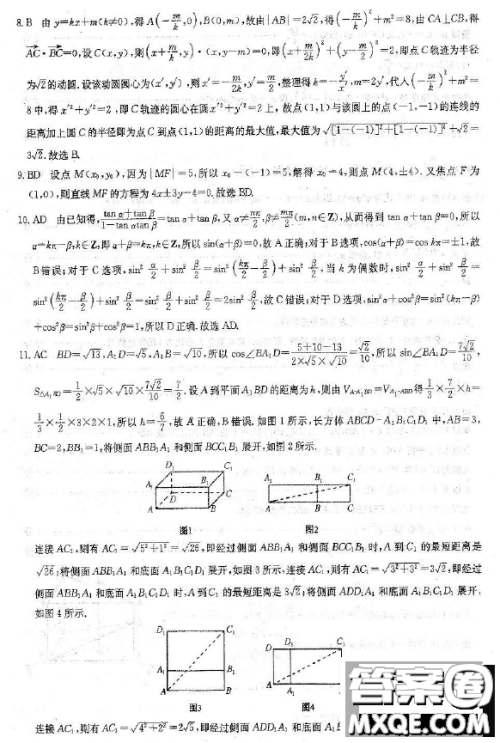 8. B 由 y=kx+m(k≠0),得 A(-m/k,0),B(0,m),故由|AB|=2√2,得(-m/k)²+m²=8,由 CA⊥CB,得
AC·BC=0,设C(x,y),则(x+m/k,y)·(x,y-m)=0,即(x+m/2k)²+(y-m/2)²=2,即点C轨迹为半径
为√2的动圆.设该动圆圆心为(x′,y′),则x′=-m/2k,y′=m/2,整理得k=-y′/x′,m=2y′,代入(-m/k)²+m²=
8中,得x′²+y′²=2,即C轨迹的圆心在圆x′²+y′²=2上,故点(1,1)与该圆上的点(-1,-1)的连线的
距离加上圆C的半径即为点C到点(1,1)的距离的最大值,最大值为√([1-(-1)]²+[1-(-1)]²)+√2=
3√2.故选B.
9. BD 设点M(x₀,y₀),因为|MF|=5,所以x₀-(-1)=5,解得x₀=4,则点M(4,±4).又焦点F为
(1,0),则直线MF的方程为4x±3y-4=0.故选BD.
10. AD 由已知得,(tan α+tan β)/(1-tan αtan β)=tan α+tan β,又α≠nπ/2,β≠mπ/2(m,n∈Z),从而得到tan α+tan β=0,所以
α=kπ-β,k∈Z,即α+β=kπ,k∈Z,所以sin(α+β)=0,故A正确;对于B选项,cos(α+β)=cos kπ=±1,故
B错误;对于C选项,sin²α/2+sin²β/2=sin²(kπ/2-β/2)+sin²β/2,当k为偶数时,sin²α/2+sin²β/2=
sin²(kπ/2-β/2)+sin²β/2=sin²β/2+sin²β/2=2sin²β/2,故C错误;对于D选项,sin²α+cos²β=sin²(kπ-β)
+cos²β=sin²β+cos²β=1,所以D正确.故选AD.
11. AC BD=√13,A₁D=√5,A₁B=√10,所以cos∠BA₁D=(5+10-13)/(2×√5×√10)=√2/10,所以sin∠BA₁D=7√2/10,
S△A₁BD=1/2×√5×√10×7√2/10=7/2.设A到平面A₁BD的距离为h,则由V_A-A₁BD=V_A₁-ABD得1/3×7/2×h=
1/3×1/2×3×2×1,所以h=6/7,故A正确,B错误.如图1所示,长方体ABCD-A₁B₁C₁D₁中,AB=3,
BC=2,BB₁=1,将侧面ABB₁A₁和侧面BCC₁B₁展开,如图2所示.
D₁ C₁ A₁ B₁ D C A B
A₁ B₁ C₁ A B C
图1 图2
连接AC₁,则有AC₁=√(5²+1²)=√26,即经过侧面ABB₁A₁和侧面BCC₁B₁时,A到C₁的最短距离是
√26;将侧面ABB₁A₁和底面A₁B₁C₁D₁展开,如图3所示,连接AC₁,则有AC₁=√(3²+3²)=3√2,即经过
侧面ABB₁A₁和底面A₁B₁C₁D₁时,A到C₁的最短距离是3√2;将侧面ADD₁A₁和底面A₁B₁C₁D₁展开,
如图4所示.
D₁ C₁ A₁ B₁ A B
D D₁ C₁ A A₁
图3 图4
连接AC₁,则有AC₁=√(4²+2²)=2√5,即经过侧面ADD₁A₁和底面A₁
答案圈
MXQE.COM